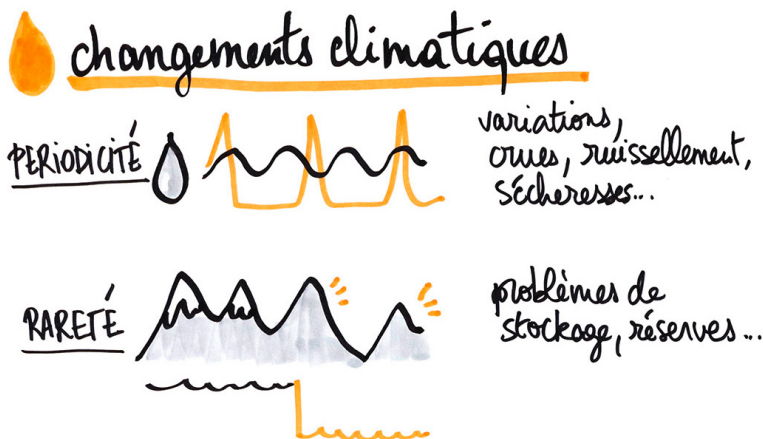 changements climatiques
PERIODICITÉ
variations,
crues, ruissellement,
sécheresses...
RARETÉ
problèmes de
stockage, réserves...